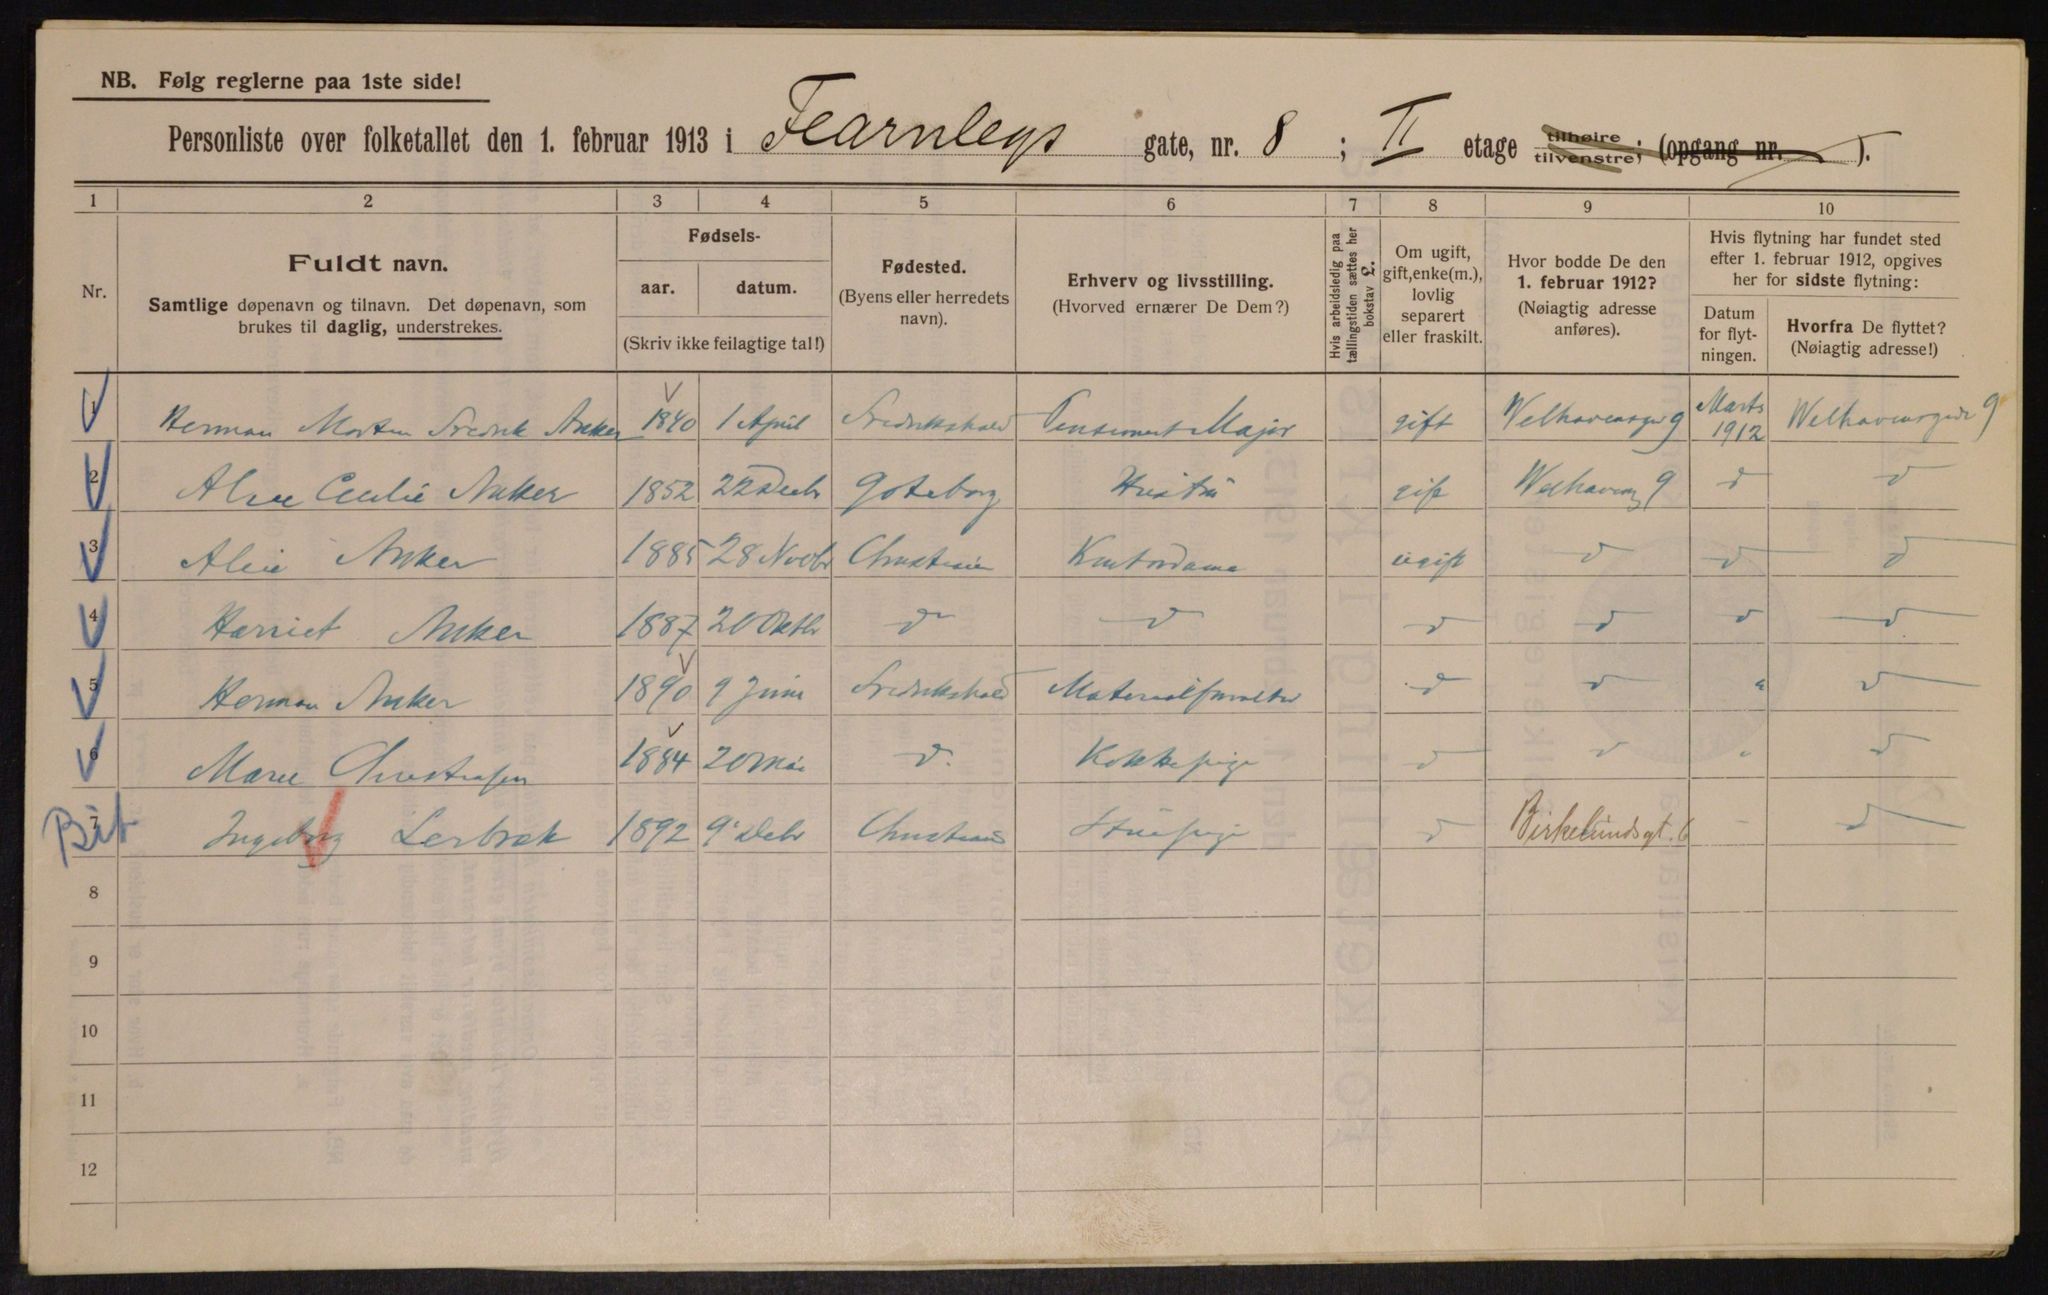 NB. Følg reglerne paa 1ste side!
Personliste over folketallet den 1. februar 1913 i Fearnleys gate, nr. 8 ; II etage tilhøire tilvenstre; (opgang nr. ).
1 2 3 4 5 6 7 8 9 10
Nr.
Fuldt navn.
Samtlige døpenavn og tilnavn. Det døpenavn, som
brukes til daglig, understrekes.
Fødsels-
aar. datum.
(Skriv ikke feilagtige tal!)
Fødested.
(Byens eller herredets
navn).
Erhverv og livsstilling.
(Hvorved ernærer De Dem?)
Hvis arbeidsledig paa
tællingstiden sættes her
bokstav L.
Om ugift,
gift, enke(m.),
lovlig
separert
eller fraskilt.
Hvor bodde De den
1. februar 1912?
(Nøiagtig adresse
anføres).
Hvis flytning har fundet sted
efter 1. februar 1912, opgives
her for sidste flytning:
Datum
for flyt-
ningen.
Hvorfra De flyttet?
(Nøiagtig adresse!)
1 Herman Morten Fredrik Anker 1840 1 April Fredrikshald Pensioneret Major gift Welhavensgt 9 Marts 1912 Welhavensgade 9
2 Alice Cecilie Anker 1852 22 Decbr Göteborg Hustru gift Welhavensg 9 d d
3 Alice Anker 1885 28 Novbr Christiania Kontordame ugift d d d
4 Harriet Anker 1887 20 Oktbr d d d d d d
5 Herman Anker 1890 9 Juni Fredrikshald Materialforvalter d d " d
6 Marie Christiansen 1884 20 Mai d. Kokkepige d d " d
Bit 7 Ingeborg Lerbræk 1892 9' Debr Christiania Stuepige d Birkelundsgt. 6 - d
8
9
10
11
12